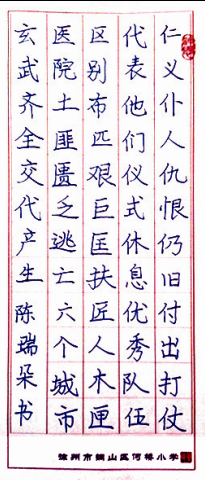 仁义仆人仇恨仍旧付出打仗
代表他们仪式休息优秀队伍
区别布匹艰巨匡扶匠人木匣
医院土匪匮乏逃亡六个城市
玄武齐全交代产生陈瑞朵书
徐州市铜山区何桥小学